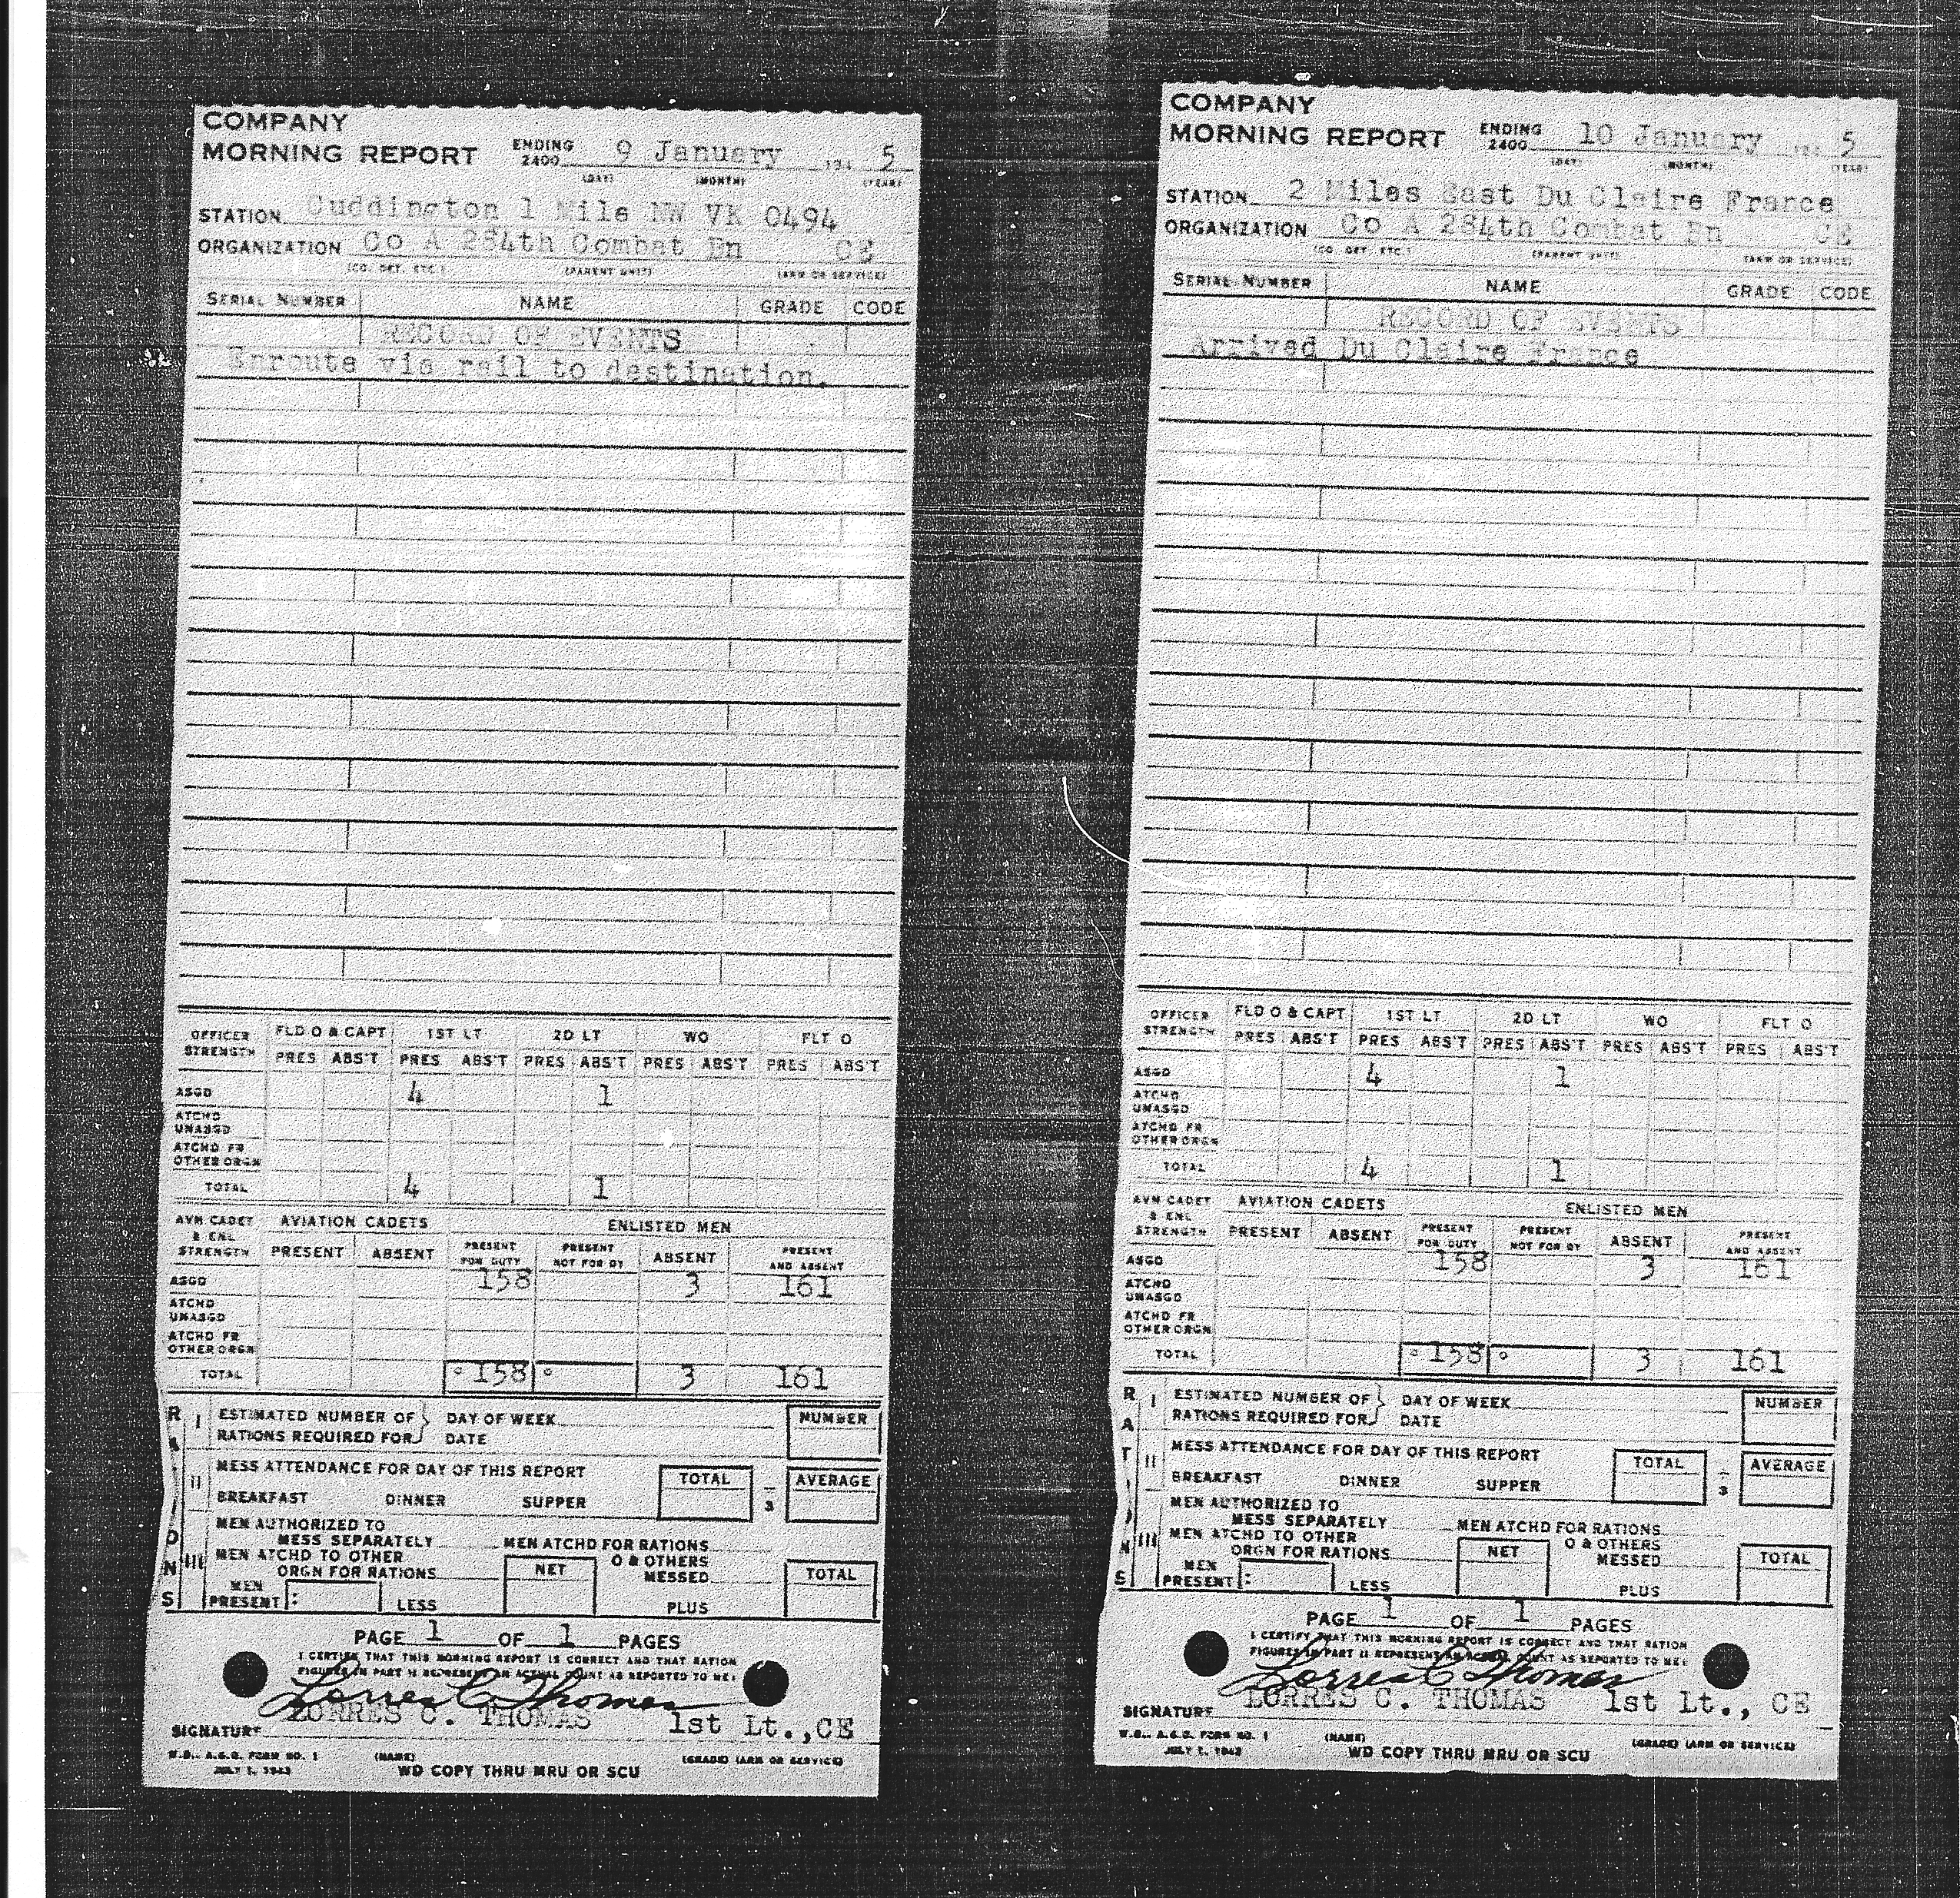 COMPANY
MORNING REPORT ENDING 2400 9 January 194 5
(DAY) (MONTH) (YEAR)
STATION Cuddington 1 Mile NW VK 0494
ORGANIZATION Co A 284th Combat En CE
(CO. DET. ETC.) (PARENT UNIT) (ARM OR SERVICE)
SERIAL NUMBER NAME GRADE CODE
RECORD OF EVENTS
Enroute via rail to destination.
OFFICER STRENGTH FLD O & CAPT 1ST LT 2D LT WO FLT O
PRES ABS'T PRES ABS'T PRES ABS'T PRES ABS'T PRES ABS'T
ASGD 4 1
ATCHD UNASGD
ATCHD FR OTHER ORGN
TOTAL 4 1
AVN CADET & ENL STRENGTH AVIATION CADETS ENLISTED MEN
PRESENT ABSENT PRESENT FOR DUTY PRESENT NOT FOR DY ABSENT PRESENT AND ABSENT
ASGD 158 3 161
ATCHD UNASGD
ATCHD FR OTHER ORGN
TOTAL 158 3 161
RATIONS
I ESTIMATED NUMBER OF RATIONS REQUIRED FOR } DAY OF WEEK NUMBER
DATE
II MESS ATTENDANCE FOR DAY OF THIS REPORT TOTAL AVERAGE
BREAKFAST DINNER SUPPER 3
III MEN AUTHORIZED TO
MESS SEPARATELY MEN ATCHD FOR RATIONS
MEN ATCHD TO OTHER O & OTHERS
ORGN FOR RATIONS NET MESSED TOTAL
MEN PRESENT : LESS PLUS
PAGE 1 OF 1 PAGES
I CERTIFY THAT THIS MORNING REPORT IS CORRECT AND THAT RATION
FIGURES IN PART II REPRESENT AN ACTUAL COUNT AS REPORTED TO ME:
Lorres C Thomas
SIGNATURE LORRES C. THOMAS 1st Lt., CE
W.D., A.G.O. FORM NO. 1 (NAME) (GRADE) (ARM OR SERVICE)
JULY 1, 1943 WD COPY THRU MRU OR SCU
COMPANY
MORNING REPORT ENDING 2400 10 January 194 5
(DAY) (MONTH) (YEAR)
STATION 2 Miles East Du Claire France
ORGANIZATION Co A 284th Combat En CE
(CO. DET. ETC.) (PARENT UNIT) (ARM OR SERVICE)
SERIAL NUMBER NAME GRADE CODE
RECORD OF EVENTS
Arrived Du Claire France
OFFICER STRENGTH FLD O & CAPT 1ST LT 2D LT WO FLT O
PRES ABS'T PRES ABS'T PRES ABS'T PRES ABS'T PRES ABS'T
ASGD 4 1
ATCHD UNASGD
ATCHD FR OTHER ORGN
TOTAL 4 1
AVN CADET & ENL STRENGTH AVIATION CADETS ENLISTED MEN
PRESENT ABSENT PRESENT FOR DUTY PRESENT NOT FOR DY ABSENT PRESENT AND ABSENT
ASGD 158 3 161
ATCHD UNASGD
ATCHD FR OTHER ORGN
TOTAL 158 3 161
RATIONS
I ESTIMATED NUMBER OF RATIONS REQUIRED FOR } DAY OF WEEK NUMBER
DATE
II MESS ATTENDANCE FOR DAY OF THIS REPORT TOTAL AVERAGE
BREAKFAST DINNER SUPPER 3
III MEN AUTHORIZED TO
MESS SEPARATELY MEN ATCHD FOR RATIONS
MEN ATCHD TO OTHER O & OTHERS
ORGN FOR RATIONS NET MESSED TOTAL
MEN PRESENT : LESS PLUS
PAGE 1 OF 1 PAGES
I CERTIFY THAT THIS MORNING REPORT IS CORRECT AND THAT RATION
FIGURES IN PART II REPRESENT AN ACTUAL COUNT AS REPORTED TO ME:
Lorres C Thomas
SIGNATURE LORRES C. THOMAS 1st Lt., CE
W.D., A.G.O. FORM NO. 1 (NAME) (GRADE) (ARM OR SERVICE)
JULY 1, 1943 WD COPY THRU MRU OR SCU